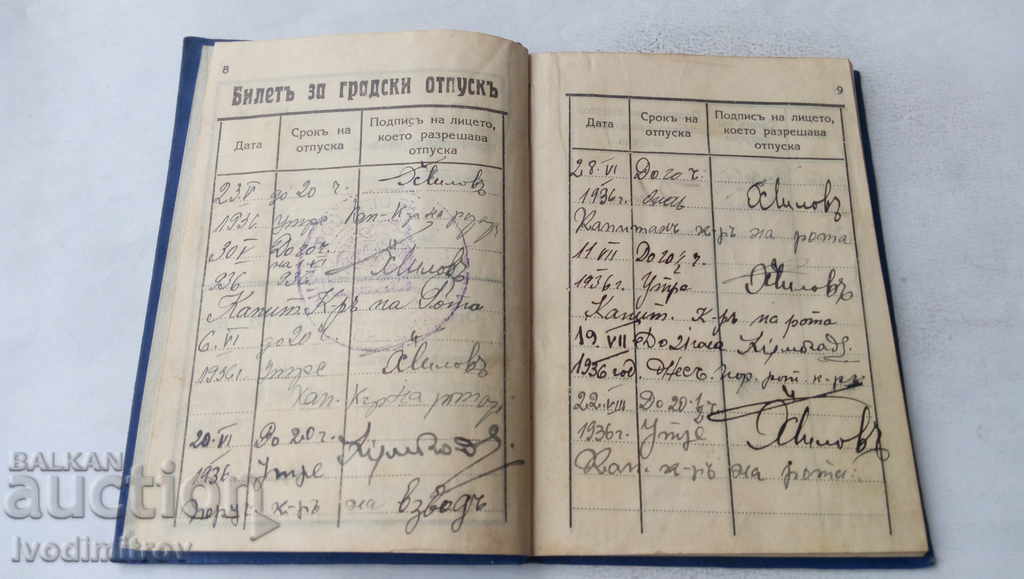 8
Билетъ за градски отпускъ
Дата
Срокъ на отпуска
Подпись на лицето, което разрешава отпуска
23 V до 20 ч.
1936. Утре Кап. К-ръ на рота
30 V До 20 ч.
936
Капит. К-ръ на Рота
6. VI до 20 ч.
1936 г. Утре
Кап. К-ръ на рота
20. VI До 20 ч.
1936. Утре
Поруч. к-ръ на взводъ
9
Дата
Срокъ на отпуска
Подпись на лицето, което разрешава отпуска
28. VI До 20 ч.
1936 г.
Капитанъ к-ръ на рота
11 VII До 20 ½ ч.
1936 г. Утре
Капит. к-ръ на рота
19. VII До 21 часа
1936 год. Днес. Пор. рот. к-ръ
22. VIII До 20 ½ ч.
1936 г. Утре
Кап. к-ръ на рота.
BALKAN
auction
Ivodimitrov